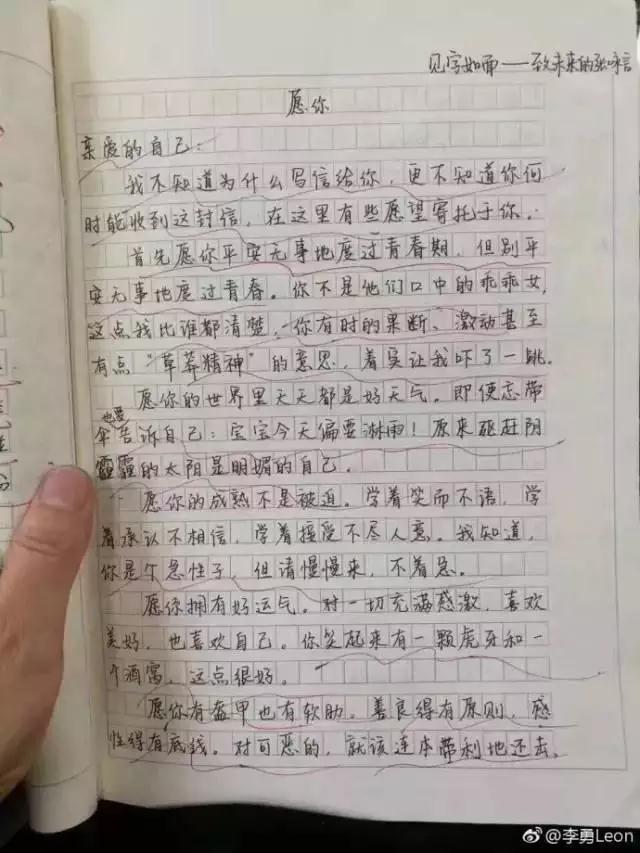 见字如面——致未来的张咏言
愿你
亲爱的自己:
我不知道为什么写信给你,更不知道你何
时能收到这封信,在这里有些愿望寄托于你。
首先愿你平安无事地度过青春期,但别平
安无事地度过青春。你不是他们口中的乖乖女,
这点我比谁都清楚,你有时的果断、激动甚至
有点“草莽精神”的意思,着实让我吓了一跳。
愿你的世界里天天都是好天气。即便忘带
也要
伞告诉自己:宝宝今天偏要淋雨!原来驱赶阴
霾霾的太阳是明媚的自己。
愿你的成熟不是被迫。学着笑而不语,学
着承认不相信,学着接受不尽人意。我知道,
你是个急性子,但请慢慢来,不着急。
愿你拥有好运气。对一切充满感激,喜欢
美好,也喜欢自己。你笑起来有一颗虎牙和一
个酒窝,这点很好。
愿你有盔甲也有软肋。善良得有原则,感
性得有底线。对可恶的,就该连本带利地还去。
@李勇Leon